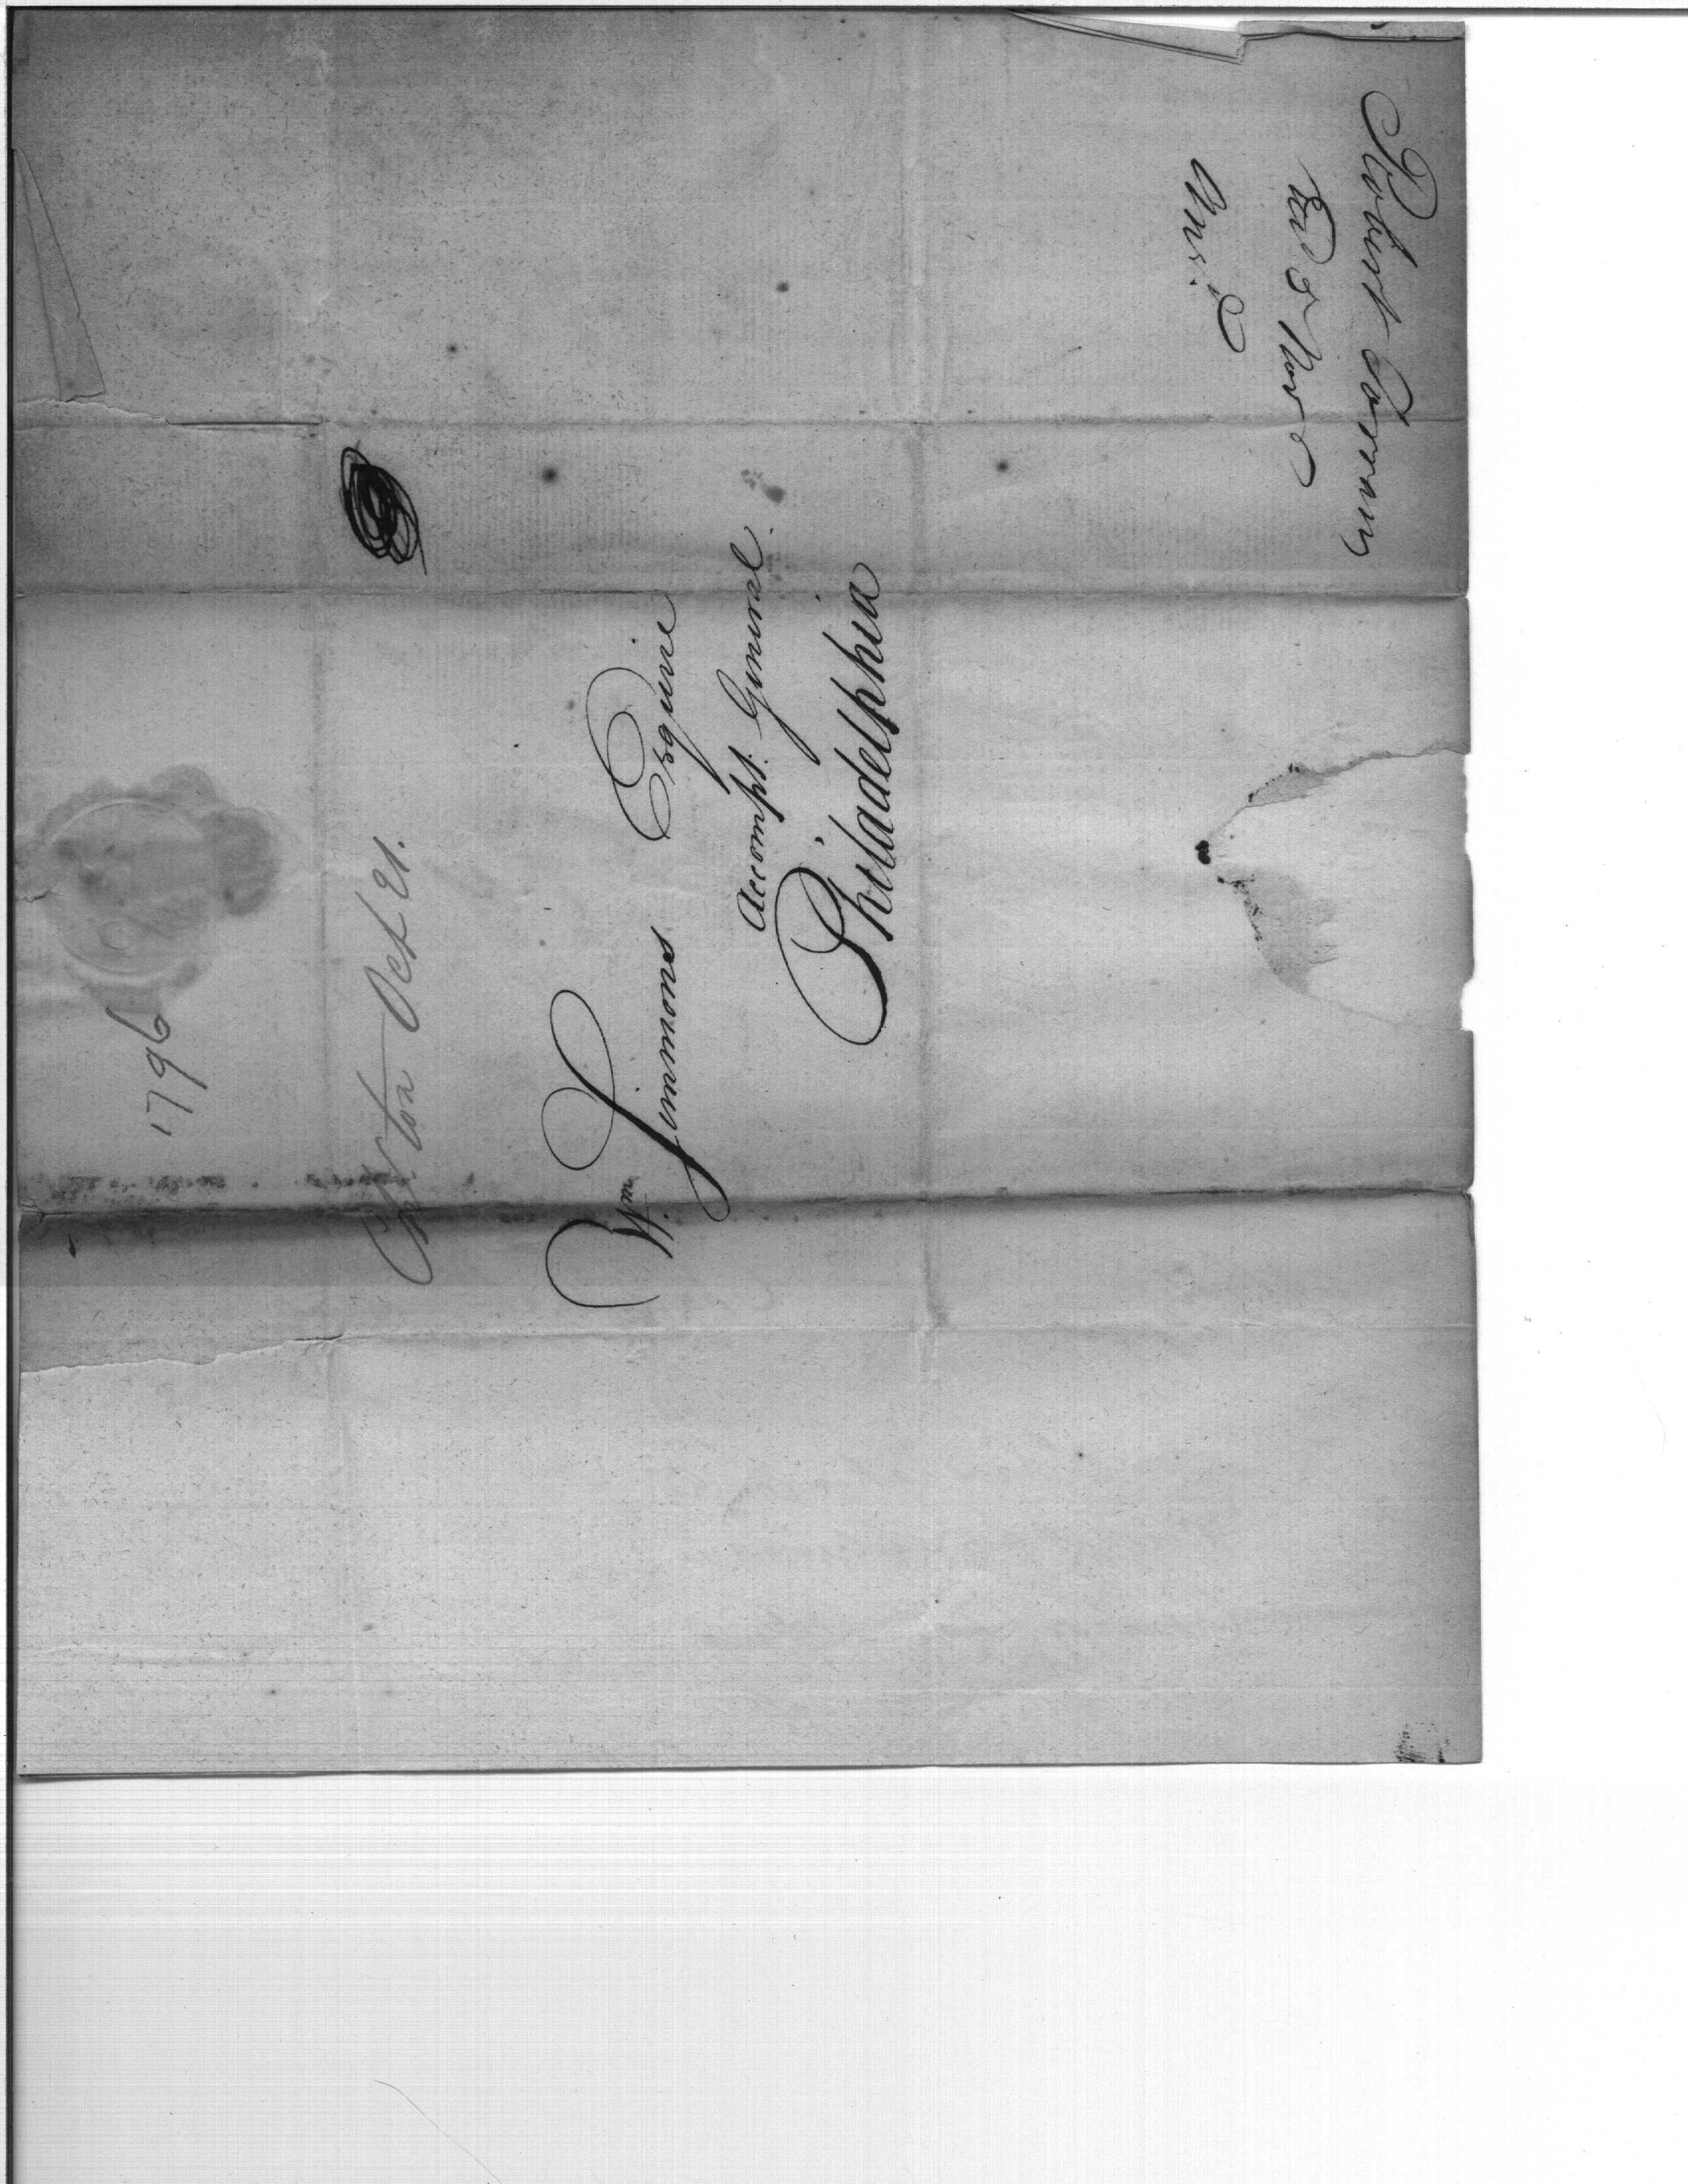 1796
Ch^s ton Oct 21.
W^m Simmons Esquire
Accompt. General.
Philadelphia
Robert
Rec^d 3 Nov^r
Ans.^d